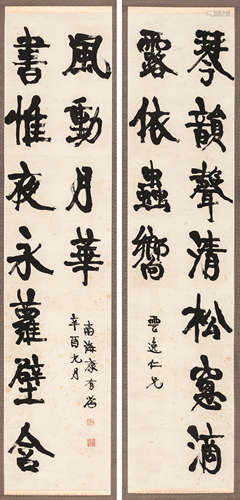 琴韻聲清松窓滴
露依蟲嚮
雲遠仁兄
書惟夜永蘿壁含
風動月華
辛酉九月
南海康有為